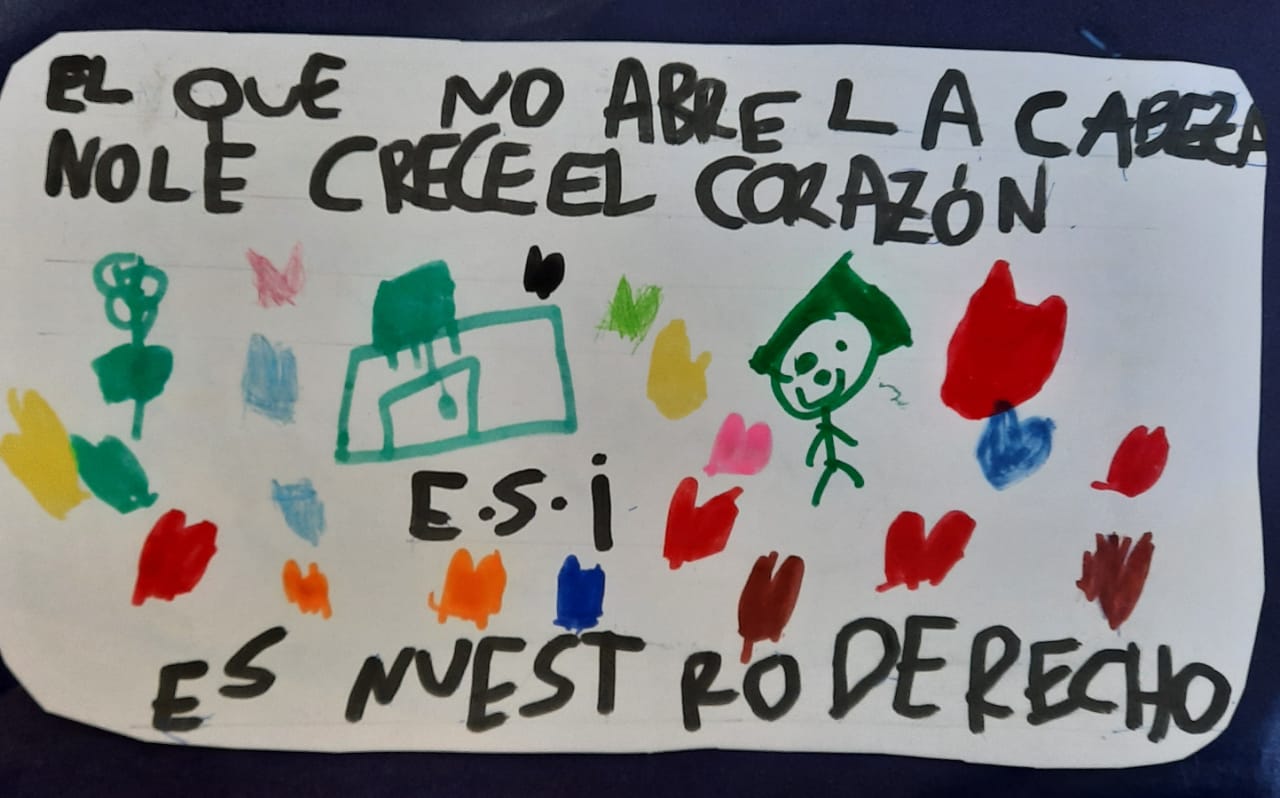 EL QUE NO ABRE LA CABEZA
NO LE CRECE EL CORAZÓN
E.S.i
ES NUESTRO DERECHO